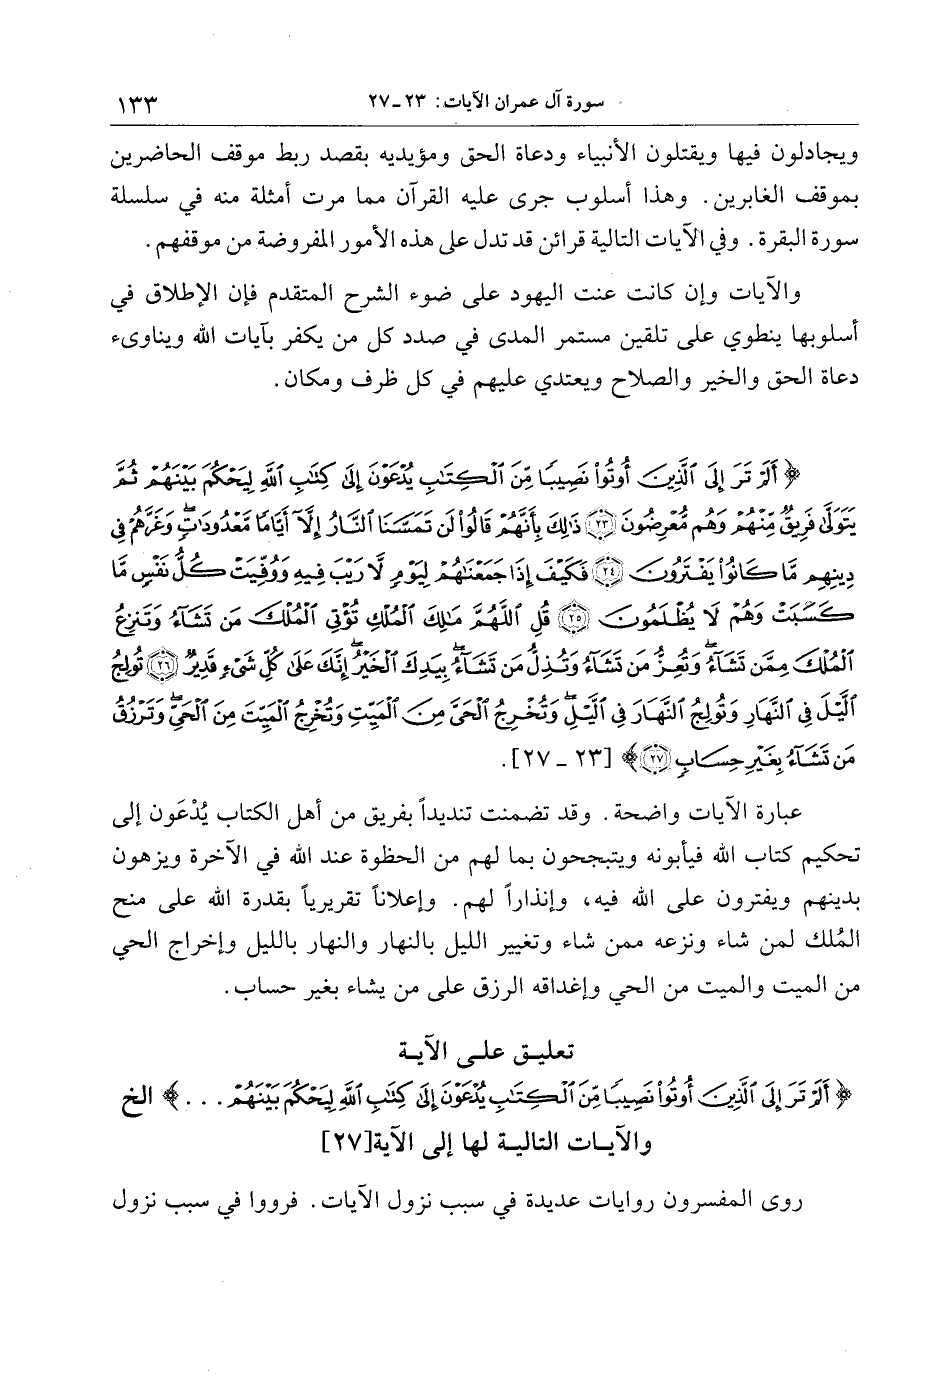 سورة آل عمران الآيات: ٢٣ـ٢٧ ١٣٣
ويجادلون فيها ويقتلون الأنبياء ودعاة الحق ومؤيديه بقصد ربط موقف الحاضرين
بموقف الغابرين. وهذا أسلوب جرى عليه القرآن مما مرت أمثلة منه في سلسلة
سورة البقرة. وفي الآيات التالية قرائن قد تدل على هذه الأمور المفروضة من موقفهم.
والآيات وإن كانت عنت اليهود على ضوء الشرح المتقدم فإن الإطلاق في
أسلوبها ينطوي على تلقين مستمر المدى في صدد كل من يكفر بآيات الله ويناوىء
دعاة الحق والخير والصلاح ويعتدي عليهم في كل ظرف ومكان.
﴿أَلَمْ تَرَ إِلَى ٱلَّذِينَ أُوتُواْ نَصِيبًا مِّنَ ٱلْكِتَٰبِ يُدْعَوْنَ إِلَىٰ كِتَٰبِ ٱللَّهِ لِيَحْكُمَ بَيْنَهُمْ ثُمَّ
يَتَوَلَّىٰ فَرِيقٌ مِّنْهُمْ وَهُم مُّعْرِضُونَ ﴿٢٣﴾ ذَٰلِكَ بِأَنَّهُمْ قَالُواْ لَن تَمَسَّنَا ٱلنَّارُ إِلَّآ أَيَّامًا مَّعْدُودَٰتٍۖ وَغَرَّهُمْ فِي
دِينِهِم مَّا كَانُواْ يَفْتَرُونَ ﴿٢٤﴾ فَكَيْفَ إِذَا جَمَعْنَٰهُمْ لِيَوْمٍ لَّا رَيْبَ فِيهِ وَوُفِّيَتْ كُلُّ نَفْسٍ مَّا
كَسَبَتْ وَهُمْ لَا يُظْلَمُونَ ﴿٢٥﴾ قُلِ ٱللَّهُمَّ مَٰلِكَ ٱلْمُلْكِ تُؤْتِي ٱلْمُلْكَ مَن تَشَآءُ وَتَنزِعُ
ٱلْمُلْكَ مِمَّن تَشَآءُ وَتُعِزُّ مَن تَشَآءُ وَتُذِلُّ مَن تَشَآءُۖ بِيَدِكَ ٱلْخَيْرُۖ إِنَّكَ عَلَىٰ كُلِّ شَيْءٍ قَدِيرٌ ﴿٢٦﴾ تُولِجُ
ٱلَّيْلَ فِي ٱلنَّهَارِ وَتُولِجُ ٱلنَّهَارَ فِي ٱلَّيْلِۖ وَتُخْرِجُ ٱلْحَيَّ مِنَ ٱلْمَيِّتِ وَتُخْرِجُ ٱلْمَيِّتَ مِنَ ٱلْحَيِّۖ وَتَرْزُقُ
مَن تَشَآءُ بِغَيْرِ حِسَابٍ ﴿٢٧﴾﴾ [٢٣ ـ ٢٧].
عبارة الآيات واضحة. وقد تضمنت تنديداً بفريق من أهل الكتاب يُدْعَون إلى
تحكيم كتاب الله فيأبونه ويتبجحون بما لهم من الحظوة عند الله في الآخرة ويزهون
بدينهم ويفترون على الله فيه، وإنذاراً لهم. وإعلاناً تقريرياً بقدرة الله على منح
المُلك لمن شاء ونزعه ممن شاء وتغيير الليل بالنهار والنهار بالليل وإخراج الحي
من الميت والميت من الحي وإغداقه الرزق على من يشاء بغير حساب.
تعليق على الآية
﴿أَلَمْ تَرَ إِلَى ٱلَّذِينَ أُوتُواْ نَصِيبًا مِّنَ ٱلْكِتَٰبِ يُدْعَوْنَ إِلَىٰ كِتَٰبِ ٱللَّهِ لِيَحْكُمَ بَيْنَهُمْ...﴾ الخ
والآيات التالية لها إلى الآية[٢٧]
روى المفسرون روايات عديدة في سبب نزول الآيات. فرووا في سبب نزول